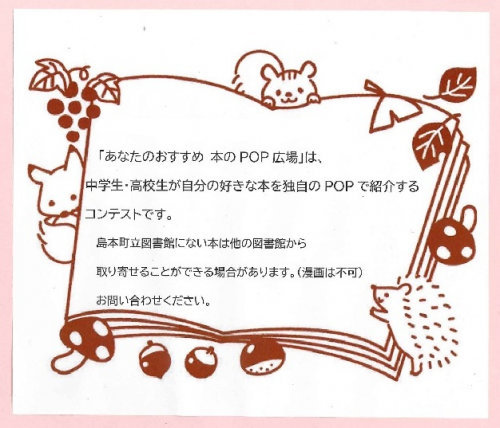 「あなたのおすすめ 本の POP 広場」は、
中学生・高校生が自分の好きな本を独自の POP で紹介する
コンテストです。
島本町立図書館にない本は他の図書館から
取り寄せることができる場合があります。(漫画は不可)
お問い合わせください。